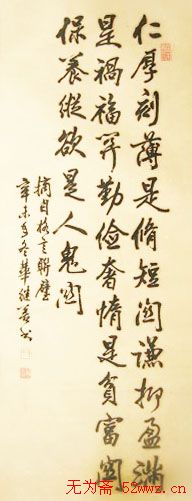 仁厚刻薄是脩短関謙抑盈满
是禍福関勤儉奢惰是貧富関
保養縱欲是人鬼関
摘自格言聯璧
辛未冬華継善书
无为斋 52wwz.cn